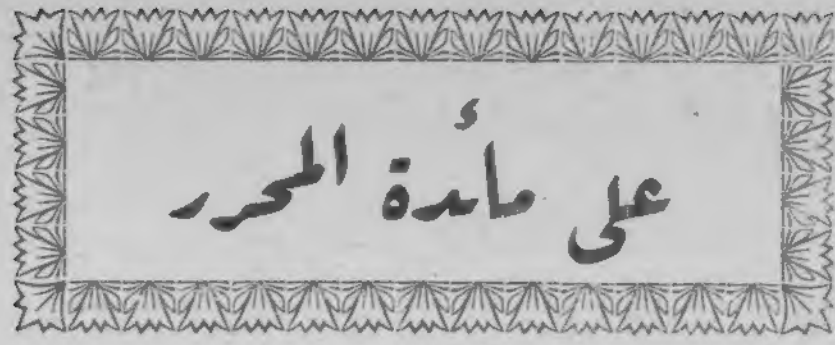 على مأدة المحرر